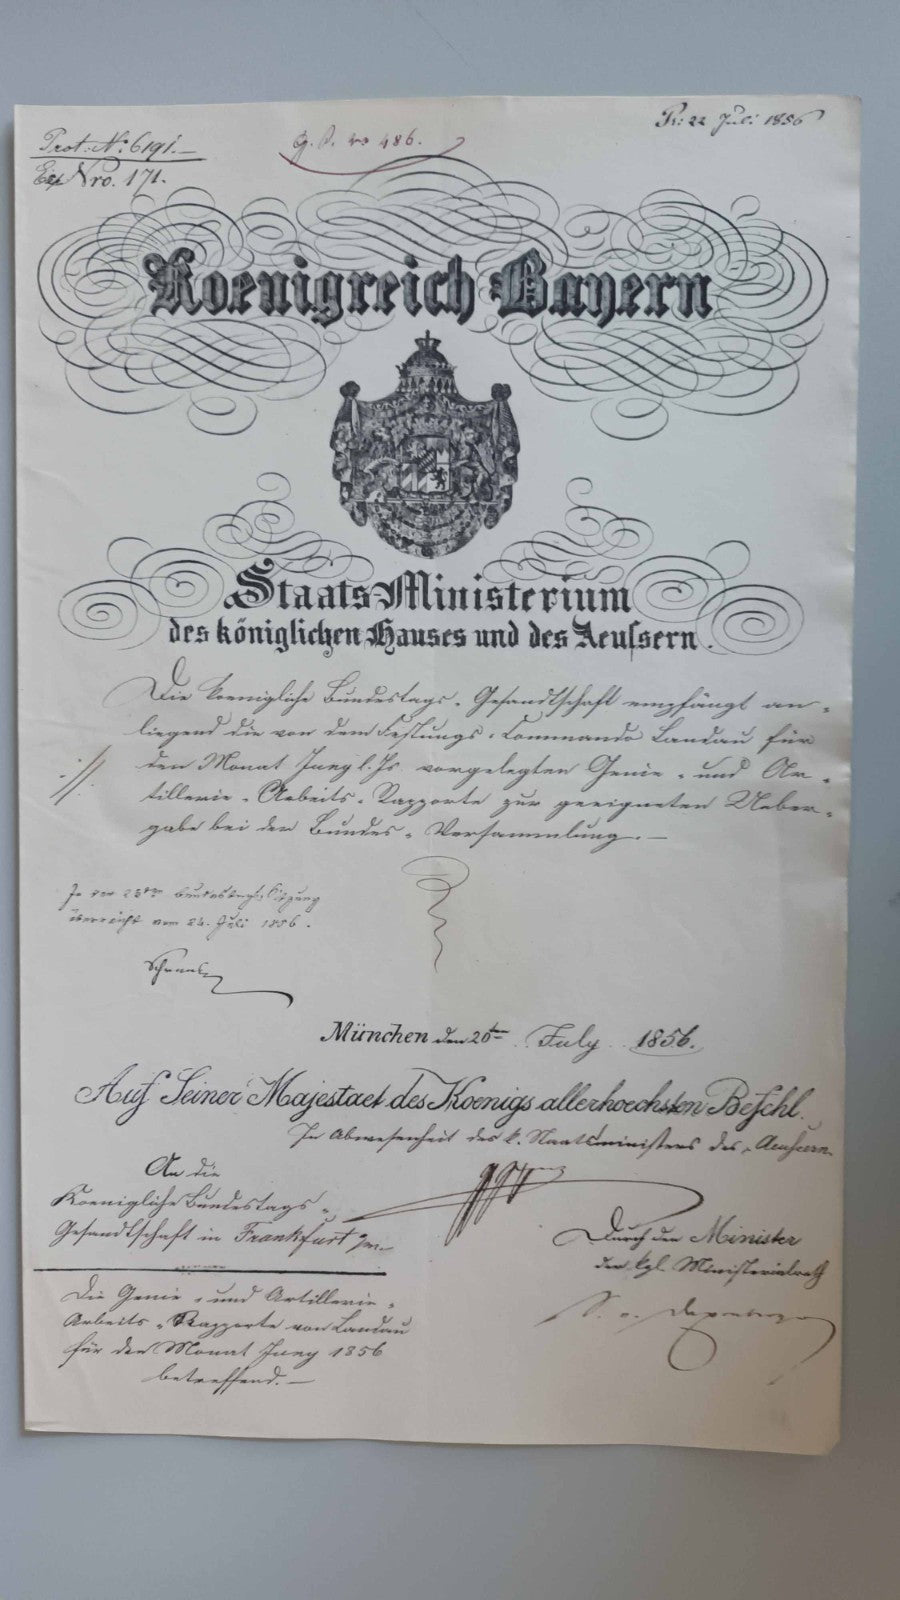 Pr: 22 Juli 1856
Prot: N: 6191.—
Exp Nro. 171.
g. P. no 486.
Koenigreich Bayern
Staats Ministerium
des königlichen Hauses und des Aeussern.
Die koenigliche Bundestags-Gesandtschaft empfängt an-
liegend die von dem Festungs-Commando Landau für
den Monat Juny l. Js. vorgelegten Genie- und Ar-
tillerie-Arbeits-Rapporte zur geeigneten Ueber-
gabe bei der Bundes-Versammlung.—
·//.
In der 23ten Bundestags-Sitzung
überreicht vom 24. Juli 1856.
München den 20ten July 1856.
Auf Seiner Majestaet des Koenigs allerhoechsten Befehl.
In Abwesenheit des k. Staatsministers des Aeussern.
An die
Koenigliche Bundestags-
Gesandtschaft in Frankfurt
Durch den Minister
der kgl. Ministerialrath
Die Genie- und Artillerie-
Arbeits-Rapporte von Landau
für den Monat Juny 1856
betreffend.—